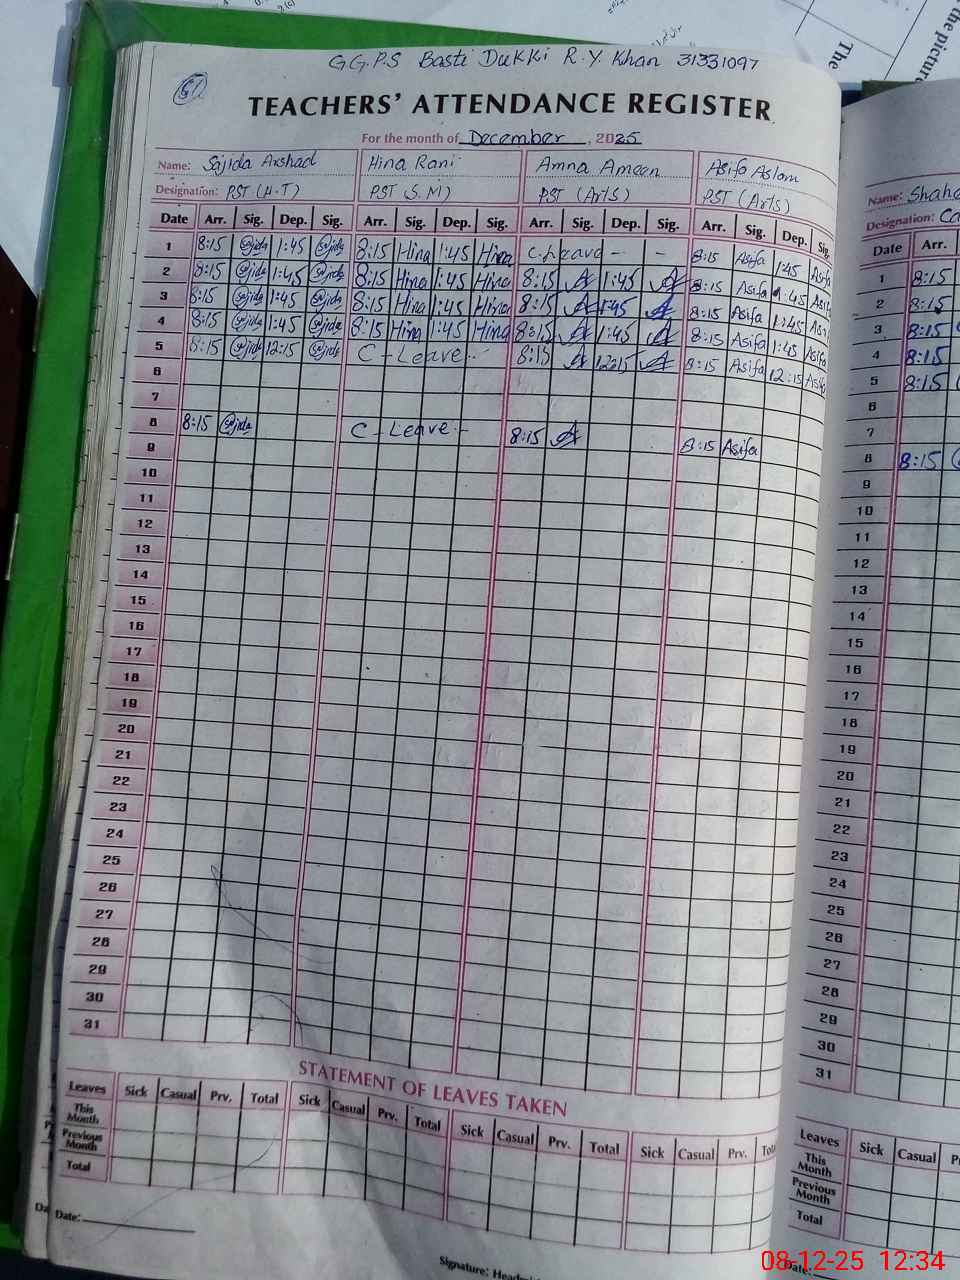 the picture
The
GG.P.S Basti Dukki R.Y. Khan 31331097
TEACHERS' ATTENDANCE REGISTER
For the month of December, 2025
Name: Sajida Arshad Hina Rani Amna Ameen Asifa Aslam
Designation: PST (H.T) PST (S.M) PST (Arts) PST (Arts)
Date Arr. Sig. Dep. Sig. Arr. Sig. Dep. Sig. Arr. Sig. Dep. Sig. Arr. Sig. Dep. Sig.
1 8:15 Sajida 1:45 Sajida 8:15 Hina 1:45 Hina C. Leave - - 8:15 Asifa 1:45 Asifa
2 8:15 Sajida 1:45 Sajida 8:15 Hina 1:45 Hina 8:15 A 1:45 A 8:15 Asifa 1:45 Asifa
3 8:15 Sajida 1:45 Sajida 8:15 Hina 1:45 Hina 8:15 A 1:45 A 8:15 Asifa 1:45 Asifa
4 8:15 Sajida 1:45 Sajida 8:15 Hina 1:45 Hina 8:15 A 1:45 A 8:15 Asifa 1:45 Asifa
5 8:15 Sajida 12:15 Sajida C - Leave 8:15 A 12:15 A 8:15 Asifa 12:15 Asifa
6
7
8 8:15 Sajida C - Leave 8:15 A 8:15 Asifa
9
10
11
12
13
14
15
16
17
18
19
20
21
22
23
24
25
26
27
28
29
30
31
STATEMENT OF LEAVES TAKEN
Leaves Sick Casual Prv. Total Sick Casual Prv. Total Sick Casual Prv. Total Sick Casual Prv. Total
This Month
Previous Month
Total
Date:
Signature: Head
Name: Shaha
Designation: Ca
Date Arr.
1 8:15
2 8:15
3 8:15
4 8:15
5 8:15
6
7
8 8:15
9
10
11
12
13
14
15
16
17
18
19
20
21
22
23
24
25
26
27
28
29
30
31
Leaves Sick Casual P
This Month
Previous Month
Total
Date:
08-12-25 12:34